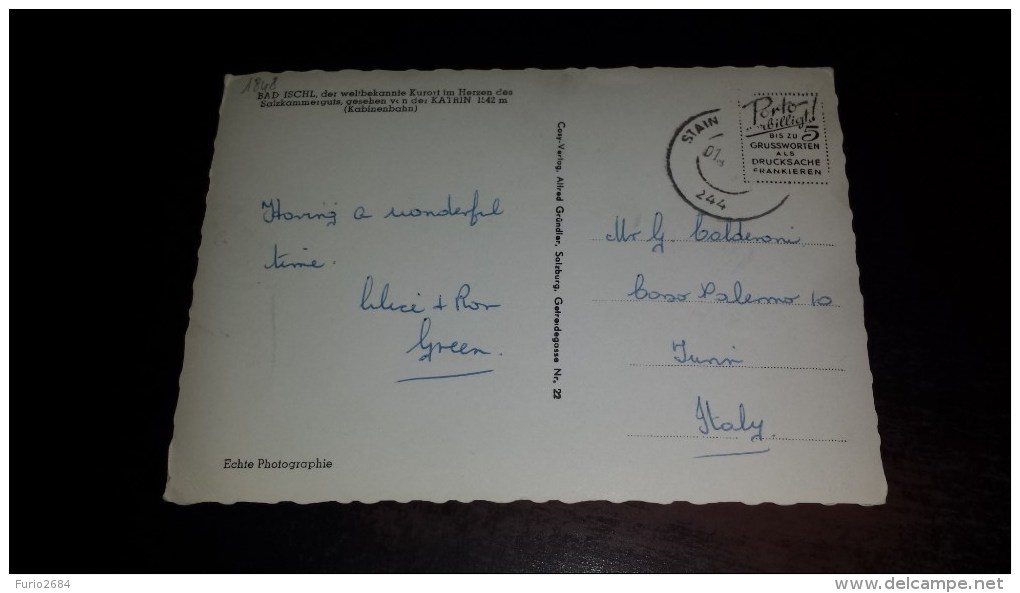 1848
BAD ISCHL, der weltbekannte Kurort im Herzen des
Salzkammerguts, gesehen von der KATRIN 1542 m
(Kabinenbahn)
Having a wonderful
time.
Alice + Ron
Green.
Echte Photographie
Cosy-Verlag, Alfred Gründler, Salzburg, Getreidegasse Nr. 22
STAIN
01
244
Porto-
verbilligt!
BIS ZU 5
GRUSSWORTEN
ALS
DRUCKSACHE
FRANKIEREN
Mr G. Calderoni
Corso Palermo 10
Turin
Italy.
Furio2684
delcampe.net